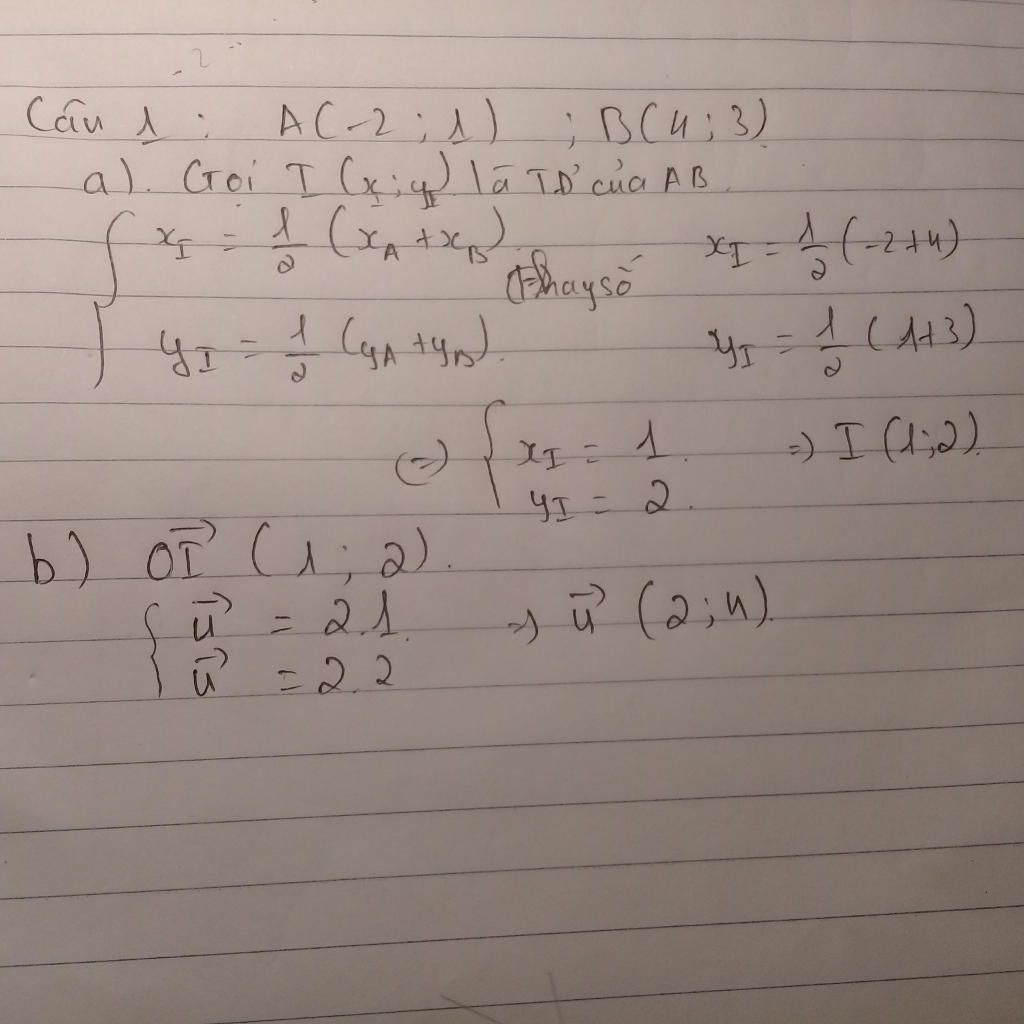 Câu 1 : A(-2 ; 1) ; B(4 ; 3)
a). Gọi I (x_I ; y_I) là TĐ của AB.
{ x_I = 1/2 (x_A + x_B) x_I = 1/2 (-2+4)
thay số
y_I = 1/2 (y_A + y_B). y_I = 1/2 (1+3)
(=) { x_I = 1. => I (1;2).
y_I = 2.
b) \vec{OI} (1 ; 2).
{ \vec{u} = 2.1. => \vec{u} (2;4).
\vec{u} = 2.2